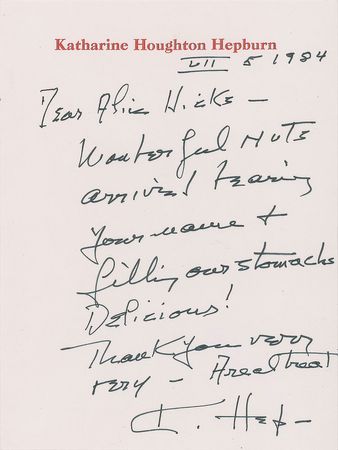 Katharine Houghton Hepburn
VII 5 1984
Dear Alice Hicks —
Wonderful nuts
arrived bearing
your name +
filling our stomachs
Delicious!
Thank you very
very — A real treat
K. Hep—